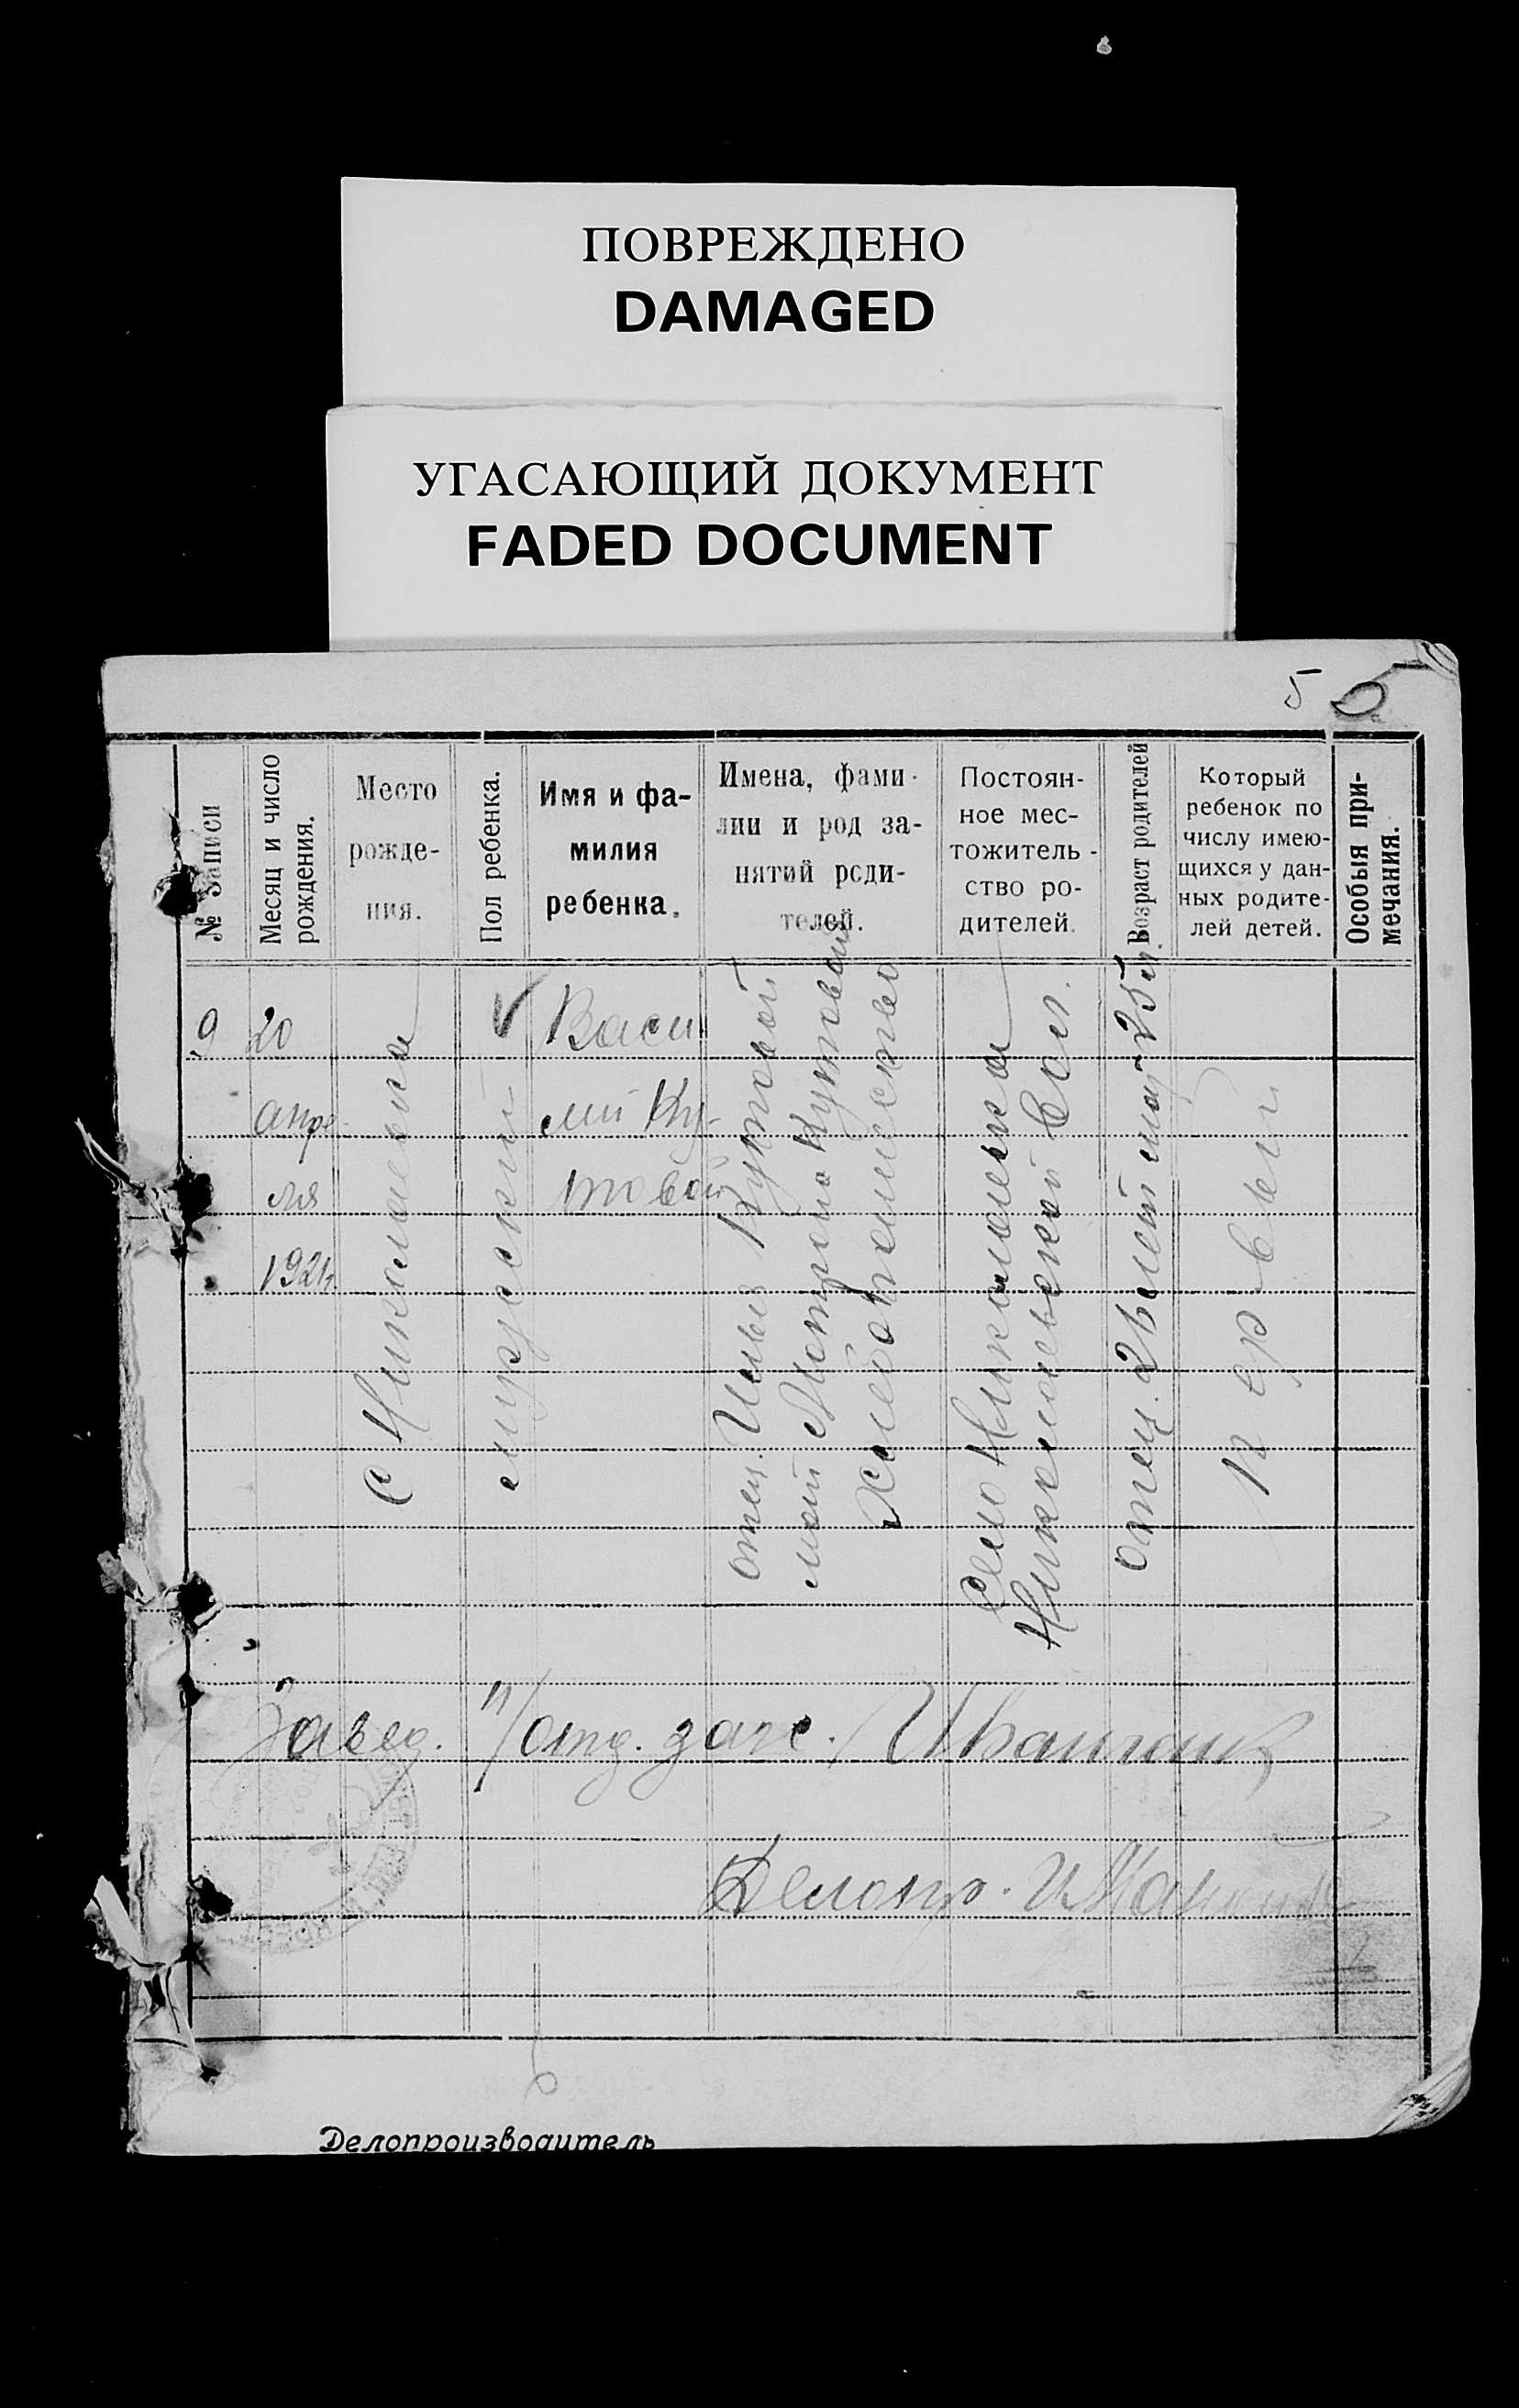 ПОВРЕЖДЕНО
DAMAGED
УГАСАЮЩИЙ ДОКУМЕНТ
FADED DOCUMENT
5
№ Записи
Месяц и число
рождения.
Место
рожде-
ния.
Пол ребенка.
Имя и фа-
милия
ребенка.
Имена, фами-
лии и род за-
нятий роди-
телей.
Постоян-
ное мес-
тожитель-
ство ро-
дителей.
Возраст родителей
Который
ребенок по
числу имею-
щихся у дан-
ных родите-
лей детей.
Особыя при-
мечания.
9
20
апре-
ля
192
с Николаевка
мужской
Васи
лий Ку-
товой
отец. Илья Кутовой
мать Матрона Кутовой
Хлебопашество
Село Николаевка
Николаевской Вол.
отец. 26 лет мат 25 л.
первый
Завед. п/отд. загс.
Делопр.
Делопроизводитель